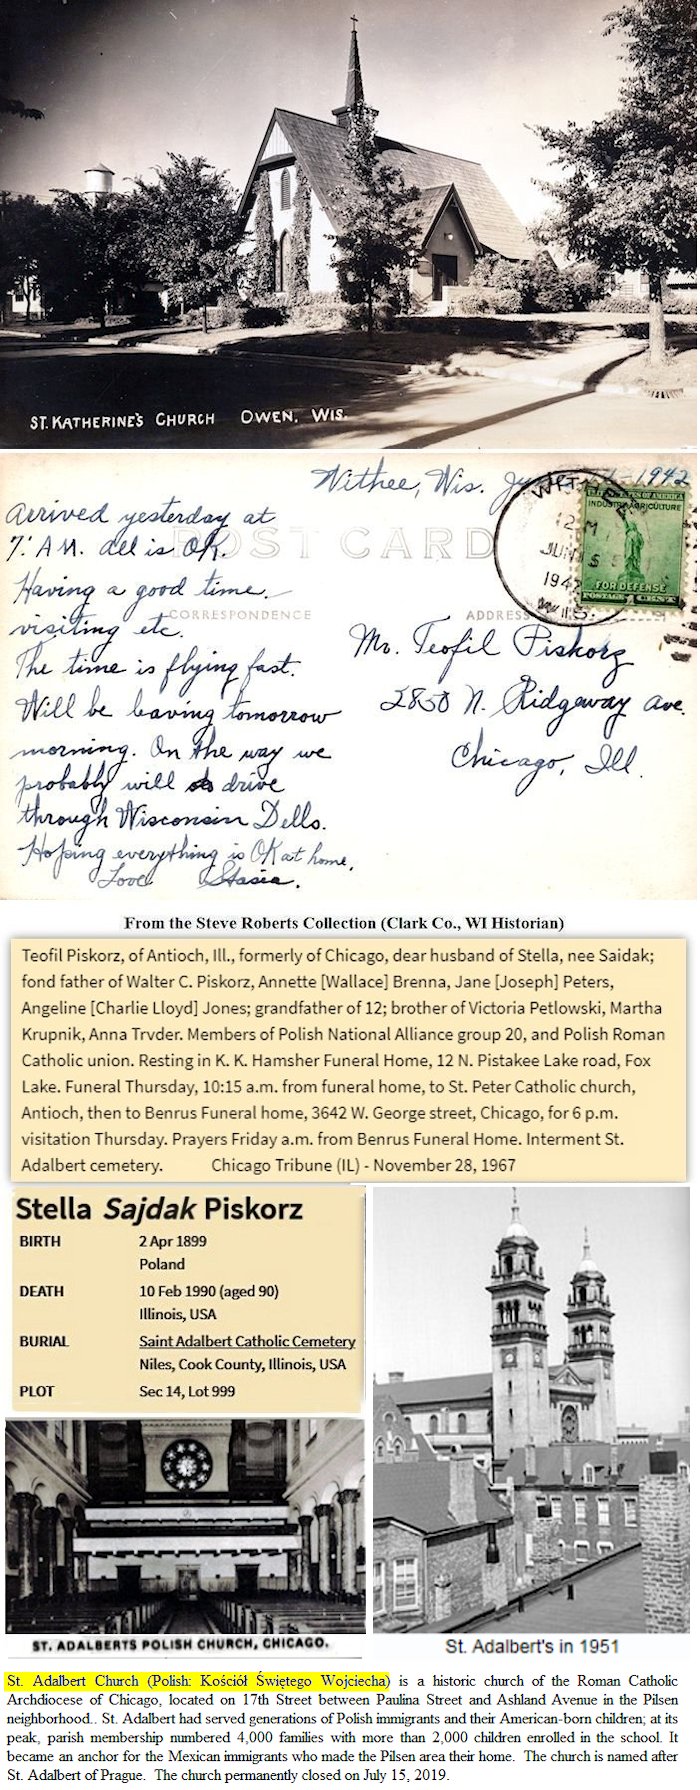 ST. KATHERINE'S CHURCH OWEN, WIS.
Withee, Wis. 1942
Arrived yesterday at
7: A.M. all is OK.
Having a good time.
visiting etc.
The time is flying fast.
Will be leaving tomorrow
morning. On the way we
probably will drive
through Wisconsin Dells.
Hoping everything is OK at home.
Love Stasia.
POST CARD
CORRESPONDENCE
ADDRESS
12 M
JUN
5
1942
WIS.
UNITED STATES OF AMERICA
INDUSTRY AGRICULTURE
FOR DEFENSE
POSTAGE 1 CENT
Mr. Teofil Piskorz
2850 N. Ridgeway Ave.
Chicago, Ill.
From the Steve Roberts Collection (Clark Co., WI Historian)
Teofil Piskorz, of Antioch, Ill., formerly of Chicago, dear husband of Stella, nee Saidak;
fond father of Walter C. Piskorz, Annette [Wallace] Brenna, Jane [Joseph] Peters,
Angeline [Charlie Lloyd] Jones; grandfather of 12; brother of Victoria Petlowski, Martha
Krupnik, Anna Trvder. Members of Polish National Alliance group 20, and Polish Roman
Catholic union. Resting in K. K. Hamsher Funeral Home, 12 N. Pistakee Lake road, Fox
Lake. Funeral Thursday, 10:15 a.m. from funeral home, to St. Peter Catholic church,
Antioch, then to Benrus Funeral home, 3642 W. George street, Chicago, for 6 p.m.
visitation Thursday. Prayers Friday a.m. from Benrus Funeral Home. Interment St.
Adalbert cemetery. Chicago Tribune (IL) - November 28, 1967
Stella Sajdak Piskorz
BIRTH 2 Apr 1899
Poland
DEATH 10 Feb 1990 (aged 90)
Illinois, USA
BURIAL Saint Adalbert Catholic Cemetery
Niles, Cook County, Illinois, USA
PLOT Sec 14, Lot 999
ST. ADALBERTS POLISH CHURCH, CHICAGO.
St. Adalbert's in 1951
St. Adalbert Church (Polish: Kościół Świętego Wojciecha) is a historic church of the Roman Catholic
Archdiocese of Chicago, located on 17th Street between Paulina Street and Ashland Avenue in the Pilsen
neighborhood.. St. Adalbert had served generations of Polish immigrants and their American-born children; at its
peak, parish membership numbered 4,000 families with more than 2,000 children enrolled in the school. It
became an anchor for the Mexican immigrants who made the Pilsen area their home. The church is named after
St. Adalbert of Prague. The church permanently closed on July 15, 2019.